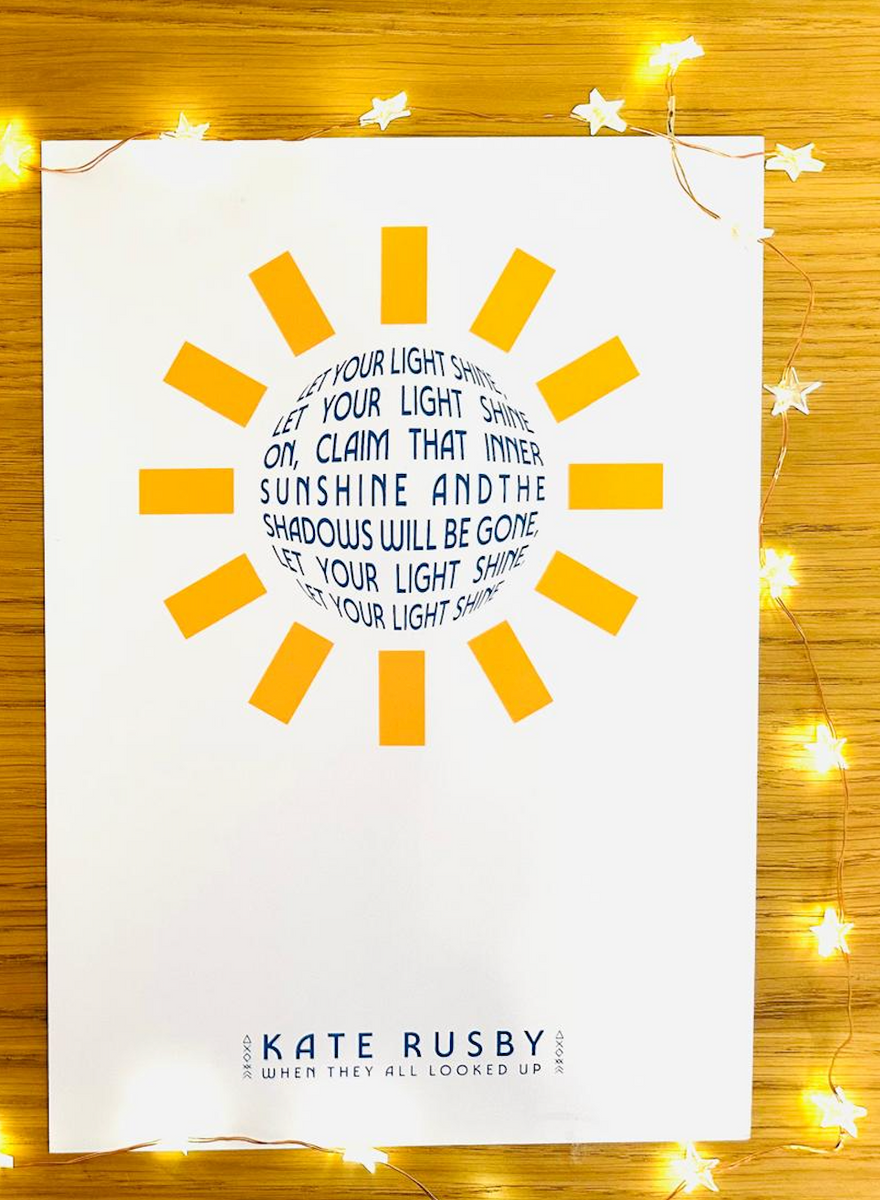 LET YOUR LIGHT SHINE,
LET YOUR LIGHT SHINE
ON, CLAIM THAT INNER
SUNSHINE ANDTHE
SHADOWS WILL BE GONE,
LET YOUR LIGHT SHINE,
LET YOUR LIGHT SHINE
KATE RUSBY
WHEN THEY ALL LOOKED UP